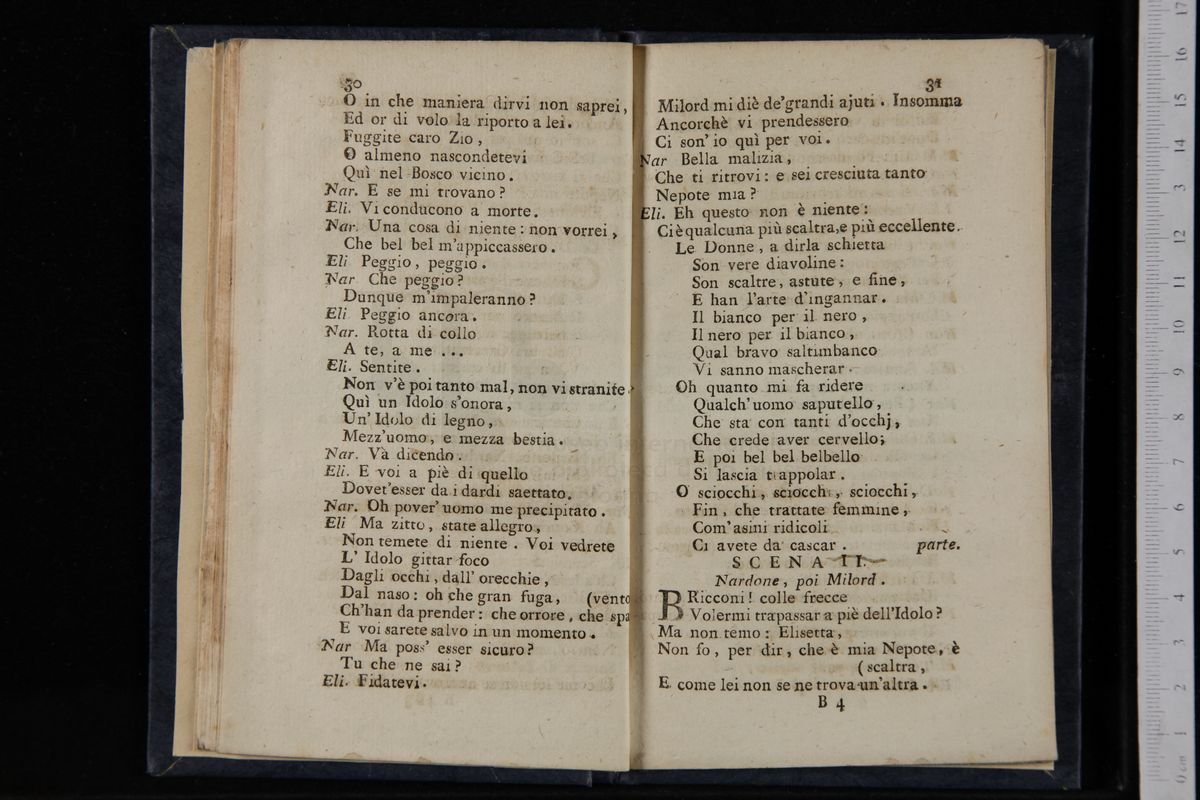 30
O in che maniera dirvi non saprei,
Ed or di volo la riporto a lei.
Fuggite caro Zio,
O almeno nascondetevi
Quì nel Bosco vicino.
Nar. E se mi trovano?
Eli. Vi conducono a morte.
Nar. Una cosa di niente: non vorrei,
Che bel bel m'appiccassero.
Eli Peggio, peggio.
Nar Che peggio?
Dunque m'impaleranno?
Eli Peggio ancora.
Nar. Rotta di collo
A te, a me ...
Eli. Sentite.
Non v'è poi tanto mal, non vi stranite
Quì un Idolo s'onora,
Un' Idolo di legno,
Mezz'uomo, e mezza bestia.
Nar. Va dicendo.
Eli. E voi a piè di quello
Dovet'esser da i dardi saettato.
Nar. Oh pover' uomo me precipitato.
Eli Ma zitto, state allegro,
Non temete di niente. Voi vedrete
L' Idolo gittar foco
Dagli occhi, dall' orecchie,
Dal naso: oh che gran fuga, (vento
Ch'han da prender: che orrore, che spa
E voi sarete salvo in un momento.
Nar Ma poss' esser sicuro?
Tu che ne sai?
Eli. Fidatevi.
31
Milord mi diè de'grandi ajuti. Insomma
Ancorchè vi prendessero
Ci son' io quì per voi.
Nar Bella malizia,
Che ti ritrovi: e sei cresciuta tanto
Nepote mia?
Eli. Eh questo non è niente:
Ci è qualcuna più scaltra, e più eccellente.
Le Donne, a dirla schietta
Son vere diavoline:
Son scaltre, astute, e fine,
E han l'arte d'ingannar.
Il bianco per il nero,
Il nero per il bianco,
Qual bravo saltimbanco
Vi sanno mascherar.
Oh quanto mi fa ridere
Qualch'uomo saputello,
Che sta con tanti d'occhj,
Che crede aver cervello;
E poi bel bel belbello
Si lascia trappolar.
O sciocchi, sciocchi, sciocchi,
Fin, che trattate femmine,
Com' asini ridicoli
Ci avete da cascar. parte.
SCENA II.
Nardone, poi Milord.
BRicconi! colle frecce
Volermi trapassar a piè dell'Idolo?
Ma non temo: Elisetta,
Non fo, per dir, che è mia Nepote, è
(scaltra,
E come lei non se ne trova un'altra.
B 4
17
16
15
14
13
12
11
10
9
8
7
6
5
4
3
2
1
0 cm